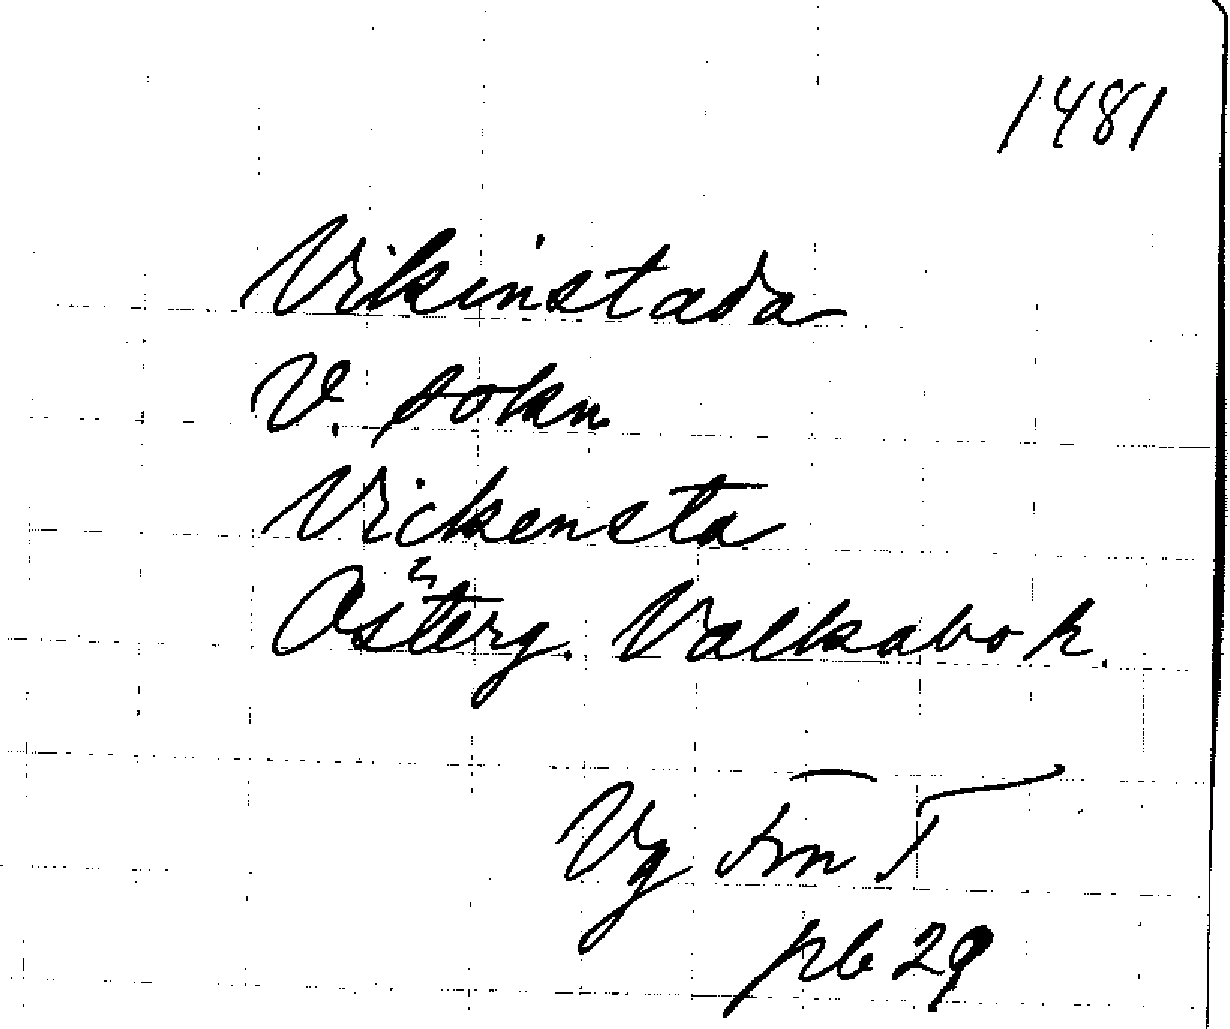 1481
Vikinstada
V. sokn
Vickensta
Österg. Valkabo h.
Vg
pb 29